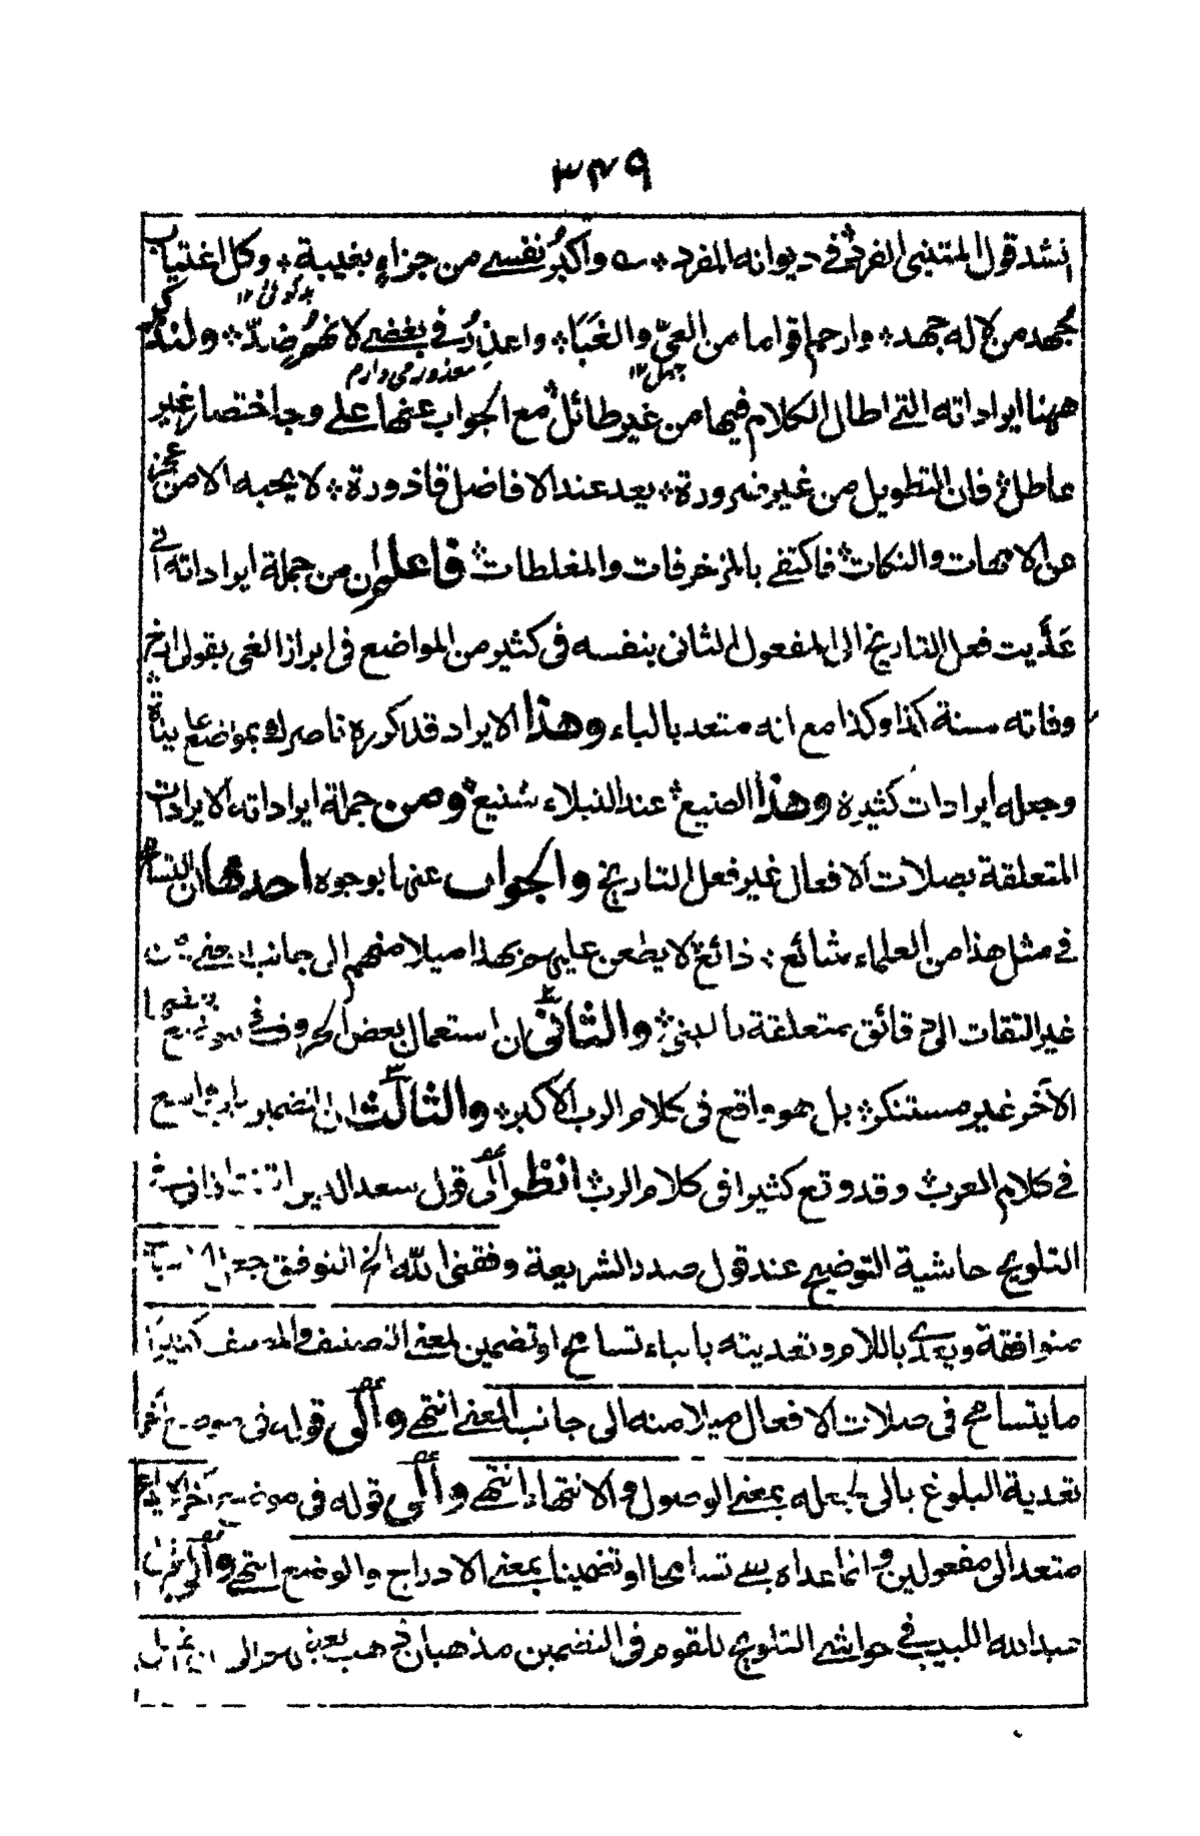 ٣٤٩
انشد قول المتنبى الفرد ؞ فى ديوانه المفرد ؞ ے واكبرُ نفسے من جزاءٍ بغيبة ؞ وكل اغتياب
بدگوئی ١٢
جُهد من لا له جهد ؞ وارحم اقواما من العىّ والغَبَا ؞ واعذِرُ فى بغضے لانهم ضدّ ؞ ولنذكر
جهل ١٢ معذور می دارم
ههنا ايراداته التے اطال الكلام فيها من غير طائل ؞ مع الجواب عنها علے وجه اختصار غير
عاطل ؞ فان التطويل من غير ضرورة ؞ يعد عند الافاضل قاذورة ؞ لا يحبه الا من عجز
عن الابحاث والنكات ؞ فاكتفے بالمزخرفات والمغلطات ؞ فاعلم ان من جملة ايراداته انے
عَدَّيت فعل التاريخ الى المفعول الثانى بنفسه فى كثير من المواضع فى ابراز الغى بقولى ارخ
وفاته سنة كذا وكذا مع انه متعد بالباء وهذا الايراد قد كرره ناصرك بمواضع عديدة
وجعله ايرادات كثيرة وهذا الصنيع ؞ عند النبلاء شنيع ؞ ومن جملة ايراداته الايرادات
المتعلقة بصلات الافعال غير فعل التاريخ والجواب عنها بوجوه احدها ان التسامح
فى مثل هذا من العلماء شائع ؞ ذائع لا يطعن عليهم بهذا ميلا منهم الى جانب المعنے من
غير التفات الى دقائق متعلقة بالمبنى ؞ والثانى ان استعمال بعض الحروف فے موضع
الآخر غير مستنكر ؞ بل هو واقع فى كلام الرب الاكبر ؞ والثالث ان التضمين باب واسع
فى كلام العرب ؞ وقد وقع كثيرا فى كلام الرب ؞ انظر الى قول سعد الدين التفتازانى فے
التلويح حاشية التوضيح عند قول صدر الشريعة وفقنى الله الخ التوفيق جعل الاسباب
متوافقة ويعدى باللام وتعديته بالباء تسامح او تضمين لمعنے التصنيف والمصنف كثيرا
ما يتسامح فى صلات الافعال ميلا منه الى جانب المعنے انتهے والى قوله فى موضع آخر
تعدية البلوغ بالى لجعله بمعنے الوصول والانتهاء انتهے والى قوله فى موضع آخر
متعد الى مفعولين وانما عداه بفے تسامحا او تضمينا بمعنے الادراج والوضع انتهے والى قول
عبد الله اللبيب فے حواشے التلويح للقوم فى التضمين مذهبان